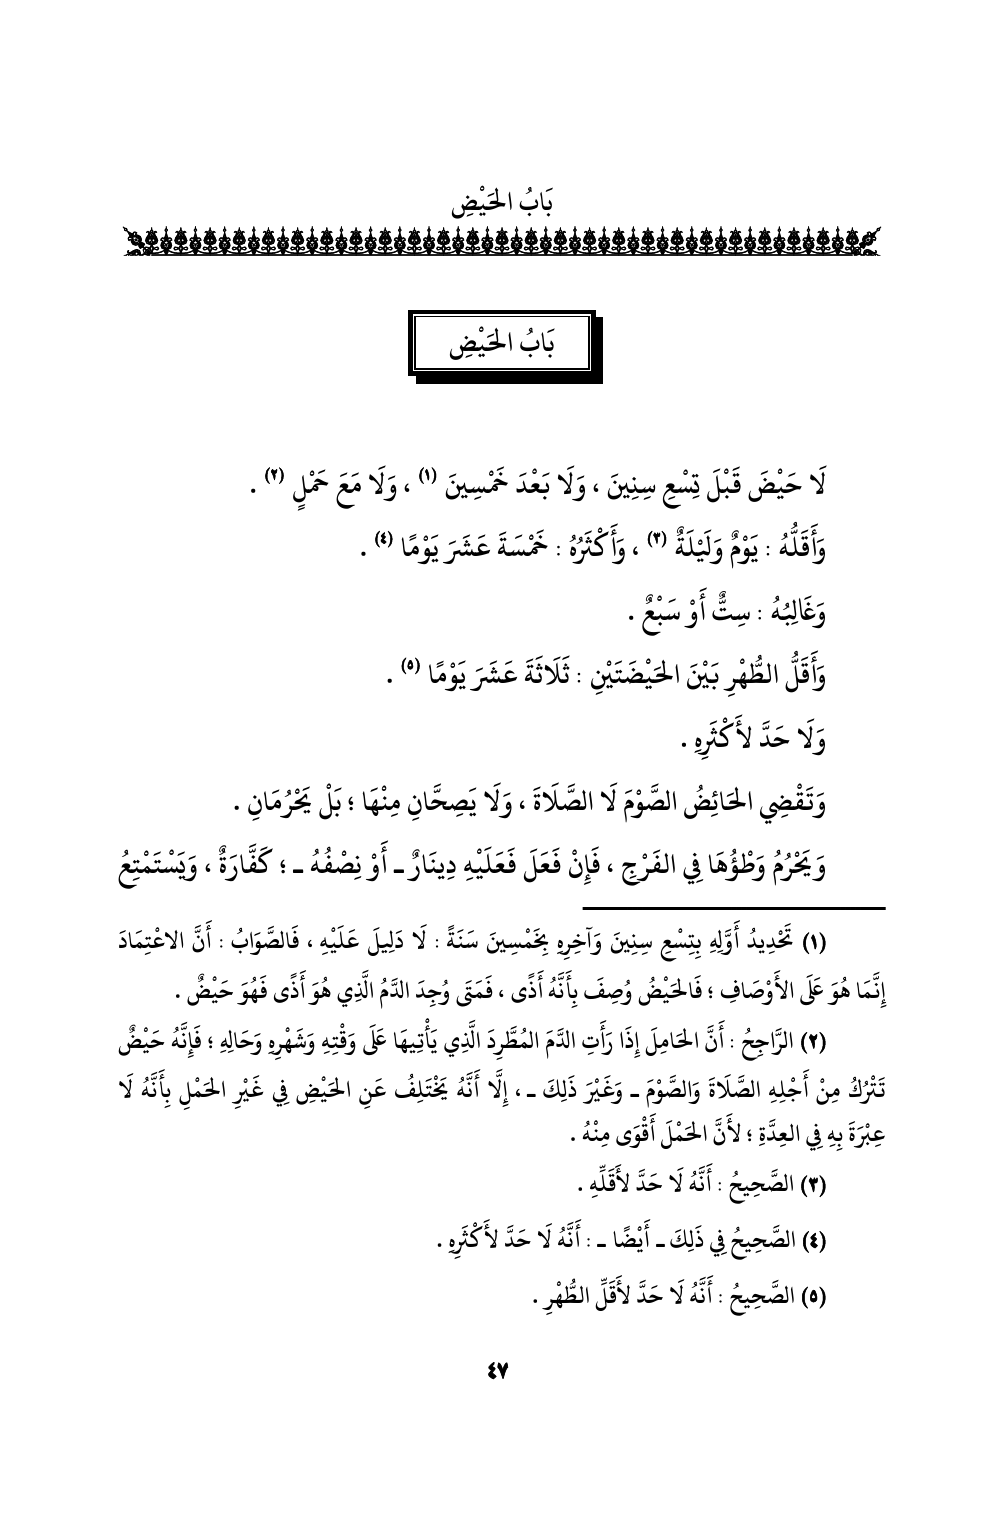 بَابُ الحَيْضِ
بَابُ الحَيْضِ
لَا حَيْضَ قَبْلَ تِسْعِ سِنِينَ ، وَلَا بَعْدَ خَمْسِينَ (١) ، وَلَا مَعَ حَمْلٍ (٢) .
وَأَقَلُّهُ : يَوْمٌ وَلَيْلَةٌ (٣) ، وَأَكْثَرُهُ : خَمْسَةَ عَشَرَ يَوْمًا (٤) .
وَغَالِبُهُ : سِتٌّ أَوْ سَبْعٌ .
وَأَقَلُّ الطُّهْرِ بَيْنَ الحَيْضَتَيْنِ : ثَلَاثَةَ عَشَرَ يَوْمًا (٥) .
وَلَا حَدَّ لأَكْثَرِهِ .
وَتَقْضِي الحَائِضُ الصَّوْمَ لَا الصَّلَاةَ ، وَلَا يَصِحَّانِ مِنْهَا ؛ بَلْ يَحْرُمَانِ .
وَيَحْرُمُ وَطْؤُهَا فِي الفَرْجِ ، فَإِنْ فَعَلَ فَعَلَيْهِ دِينَارٌ ـ أَوْ نِصْفُهُ ـ ؛ كَفَّارَةٌ ، وَيَسْتَمْتِعُ
(١) تَحْدِيدُ أَوَّلِهِ بِتِسْعِ سِنِينَ وَآخِرِهِ بِخَمْسِينَ سَنَةً : لَا دَلِيلَ عَلَيْهِ ، فَالصَّوَابُ : أَنَّ الاعْتِمَادَ
إِنَّمَا هُوَ عَلَى الأَوْصَافِ ؛ فَالحَيْضُ وُصِفَ بِأَنَّهُ أَذًى ، فَمَتَى وُجِدَ الدَّمُ الَّذِي هُوَ أَذًى فَهُوَ حَيْضٌ .
(٢) الرَّاجِحُ : أَنَّ الحَامِلَ إِذَا رَأَتِ الدَّمَ المُطَّرِدَ الَّذِي يَأْتِيهَا عَلَى وَقْتِهِ وَشَهْرِهِ وَحَالِهِ ؛ فَإِنَّهُ حَيْضٌ
تَتْرُكُ مِنْ أَجْلِهِ الصَّلَاةَ وَالصَّوْمَ ـ وَغَيْرَ ذَلِكَ ـ ، إِلَّا أَنَّهُ يَخْتَلِفُ عَنِ الحَيْضِ فِي غَيْرِ الحَمْلِ بِأَنَّهُ لَا
عِبْرَةَ بِهِ فِي العِدَّةِ ؛ لأَنَّ الحَمْلَ أَقْوَى مِنْهُ .
(٣) الصَّحِيحُ : أَنَّهُ لَا حَدَّ لأَقَلِّهِ .
(٤) الصَّحِيحُ فِي ذَلِكَ ـ أَيْضًا ـ : أَنَّهُ لَا حَدَّ لأَكْثَرِهِ .
(٥) الصَّحِيحُ : أَنَّهُ لَا حَدَّ لأَقَلِّ الطُّهْرِ .
٤٧